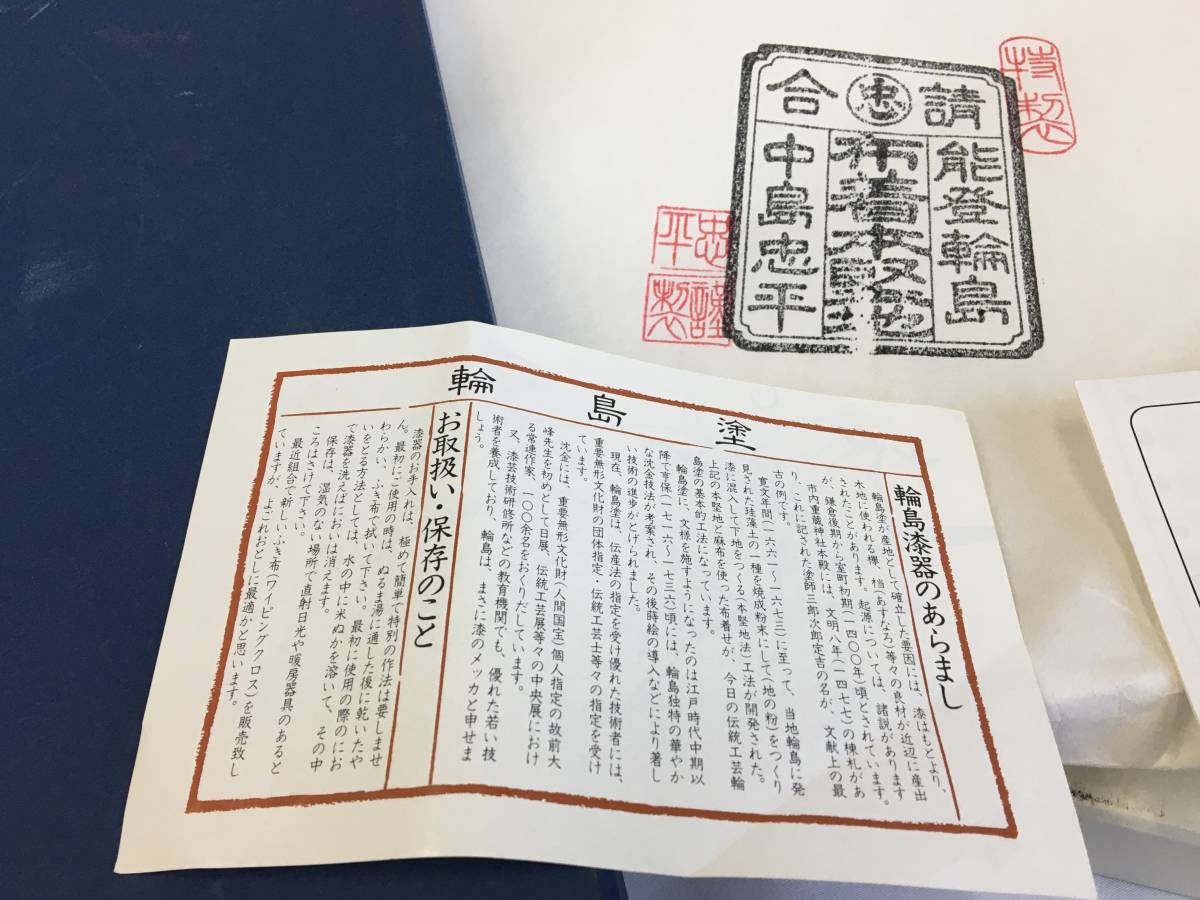 特製
請 忠 合
能登輪島
布着本堅地
中島忠平
忠平
謹製
輪島塗
輪島漆器のあらまし
輪島塗が産地として確立した要因には、漆はもとより、
木地に使われる欅、档(あすなろ)等々の良材が近辺に産出
されたことがあります。起源については、諸説があります
が、鎌倉後期から室町初期(一四〇〇年)頃とされています。
市内重蔵神社本殿には、文明八年(一四七七)の棟札があ
り、これに記された塗師三郎次郎定吉の名が、文献上の最
古の例です。
寛文年間(一六六一〜一六七三)に至って、当地輪島に発
見された珪藻土の一種を焼成粉末にして(地の粉)をつくり
漆に混入して下地をつくる(本堅地法)工法が開発された。
上記の本堅地と麻布を使った布着せが、今日の伝統工芸輪
島塗の基本的工法になっています。
輪島塗に、文様を施すようになったのは江戸時代中期以
降で享保(一七一六〜一七三六)頃には、輪島独特の華やか
な沈金技法が考案され、その後蒔絵の導入などにより著し
い技術の進歩がとげられました。
現在、輪島塗は、伝産法の指定を受け優れた技術者には、
重要無形文化財の団体指定・伝統工芸士等々の指定を受け
ています。
沈金には、重要無形文化財(人間国宝)個人指定の故前大
峰先生を初めとして日展、伝統工芸展等々の中央展におけ
る常連作家、一〇〇余名をおくりだしています。
又、漆芸技術研修所などの教育機関でも、優れた若い技
術者を養成しており、輪島は、まさに漆のメッカと申せま
しょう。
お取扱い・保存のこと
漆器のお手入れは、極めて簡単で特別の作法は要しませ
ん。最初にご使用の時は、ぬるま湯に通した後に乾いたや
わらかい、ふき布で拭いて下さい。最初に使用の際のにお
いをとる方法としては、水の中に米ぬかを溶いて、その中
で漆器を洗えばにおいは消えます。
保存は、湿気のない場所で直射日光や暖房器具のあると
ころはさけて下さい。
最近組合で新しいふき布(ワイピングクロス)を販売致し
ていますが、よごれおとしに最適かと思います。